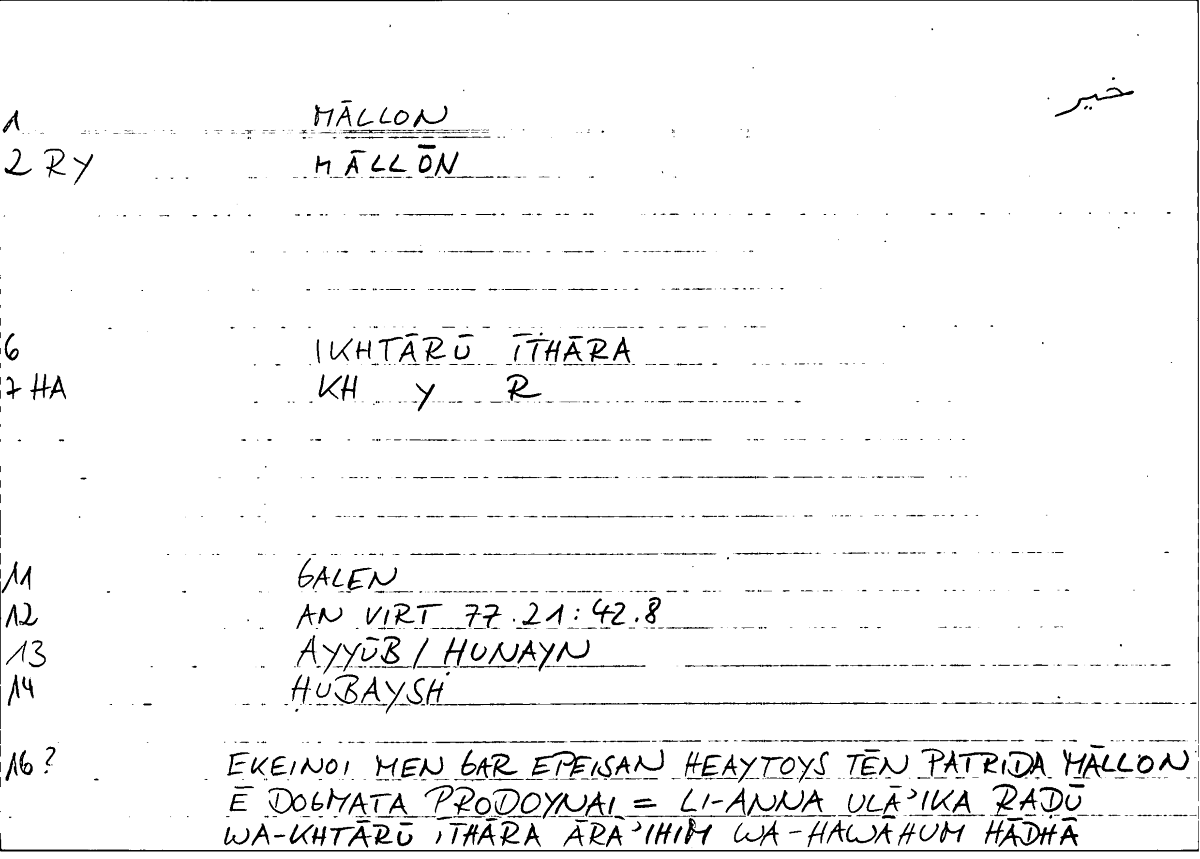 خير
1 MĀLLON
2 RY MĀLLŌN
6 IKHTĀRŪ ĪTHĀRA
7 HA KH Y R
11 GALEN
12 AN VIRT 77.21:42.8
13 AYYŪB / ḤUNAYN
14 ḤUBAYSH
16? EKEINOI MEN GAR EPEISAN HEAYTOYS TĒN PATRIDA MĀLLON
Ē DOGMATA PRODOYNAI = LI-ANNA ULĀʾIKA RAḌŪ
WA-KHTĀRŪ ĪTHĀRA ĀRĀʾIHIM WA-HAWĀHUM HĀDHĀ